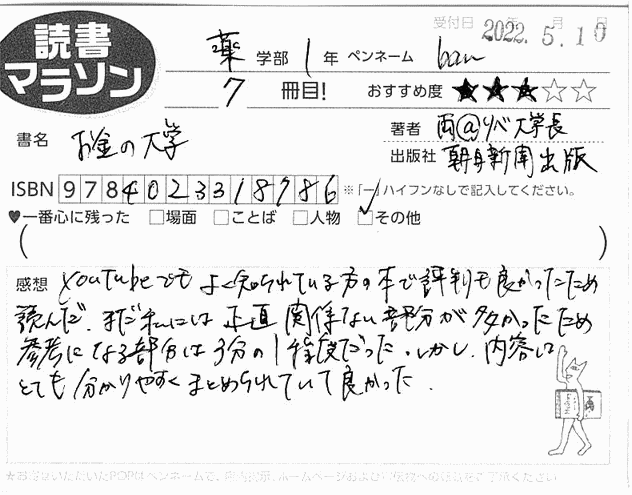 読書
マラソン
受付日 2022年 5月 10日
薬 学部 1 年 ペンネーム ban
7 冊目! おすすめ度 ★★★☆☆
書名 お金の大学
著者 両@リベ大学長
出版社 朝日新聞出版
ISBN 9784023318786 ※「-」ハイフンなしで記入してください。
♥一番心に残った □場面 □ことば □人物 ☑その他
( )
感想 YouTubeでもよく知られている方の本で評判も良かったため
読んだ。まだ私には正直関係ない部分が多かったため
参考になる部分は3分の1程度だった。しかし、内容は
とても分かりやすくまとめられていて良かった。
★お寄せいただいたPOPはペンネームで、店内掲示、ホームページおよび